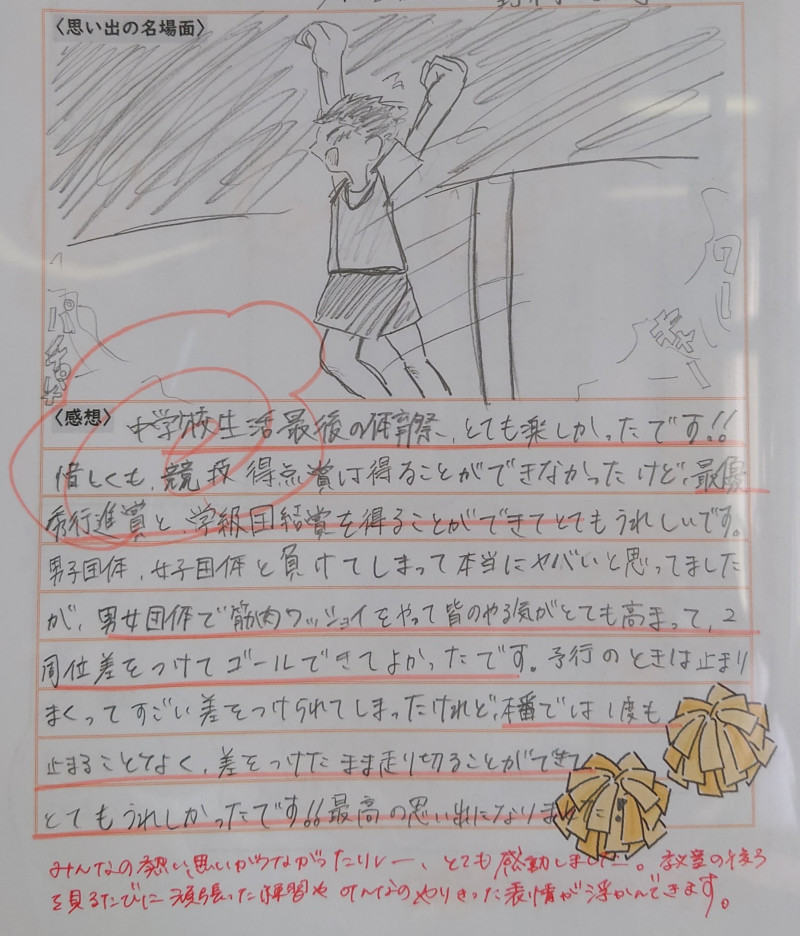 〈思い出の名場面〉
〈感想〉 中学校生活最後の体育祭、とても楽しかったです!!
惜しくも、競技得点賞は得ることができなかったけど、最優
秀行進賞と、学級団結賞を得ることができてとてもうれしいです。
男子団体、女子団体と負けてしまって本当にヤバいと思ってました
が、男女団体で筋肉ワッショイをやって皆のやる気がとても高まって、2
周位差をつけてゴールできてよかったです。予行のときは止まり
まくってすごい差をつけられてしまったけれど、本番では1度も
止まることなく、差をつけたまま走り切ることができて
とてもうれしかったです!!最高の思い出になりました
みんなの熱い思いがつながったリレー、とても感動しました。教室の後ろ
を見るたびに頑張った練習や みんなのやりきった表情が浮かんできます。